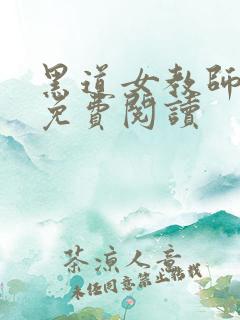 黑道女教師
免費閱讀
茶涼人意
未經同意禁止轉載